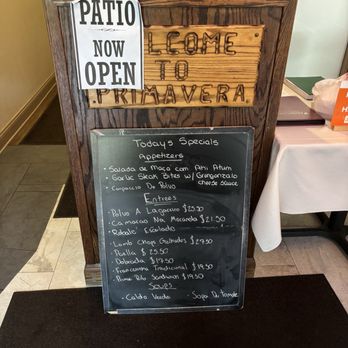 PATIO
NOW
OPEN
WELCOME
TO
PRIMAVERA
Todays Specials
Appetizers
· Salada de Maça com Ahi Atum
· Garlic Steak Bites w/ Gorgonzola
cheese sauce
· Carpaccio De Polvo
Entrees
· Polvo A Lagareiro $25.50
· Camarao Na Moranda $21.50
· Robalo Escalado
· Lamb Chops Grelhados $27.50
· Paella $25.50
· Dobrada $17.50
· Francesinha Tradicional $19.50
· Prime Rib Sandwich $19.50
Soups
· Caldo Verde · Sopa De Tomate